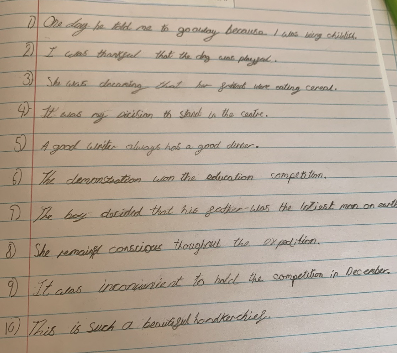 1) One day he told me to go away because I was very childish.
2) I was thankful that the dog was played.
3) She was dreaming that her father were eating cereal.
4) It was my decision to stand in the centre.
5) A good writer always has a good diner.
6) The demonstration won the education competition.
7) The boy decided that his father was the laziest man on earth
8) She remained conscious thoughout the expedition.
9) It was inconvenient to hold the competition in December.
10) This is such a beautiful handkerchief.